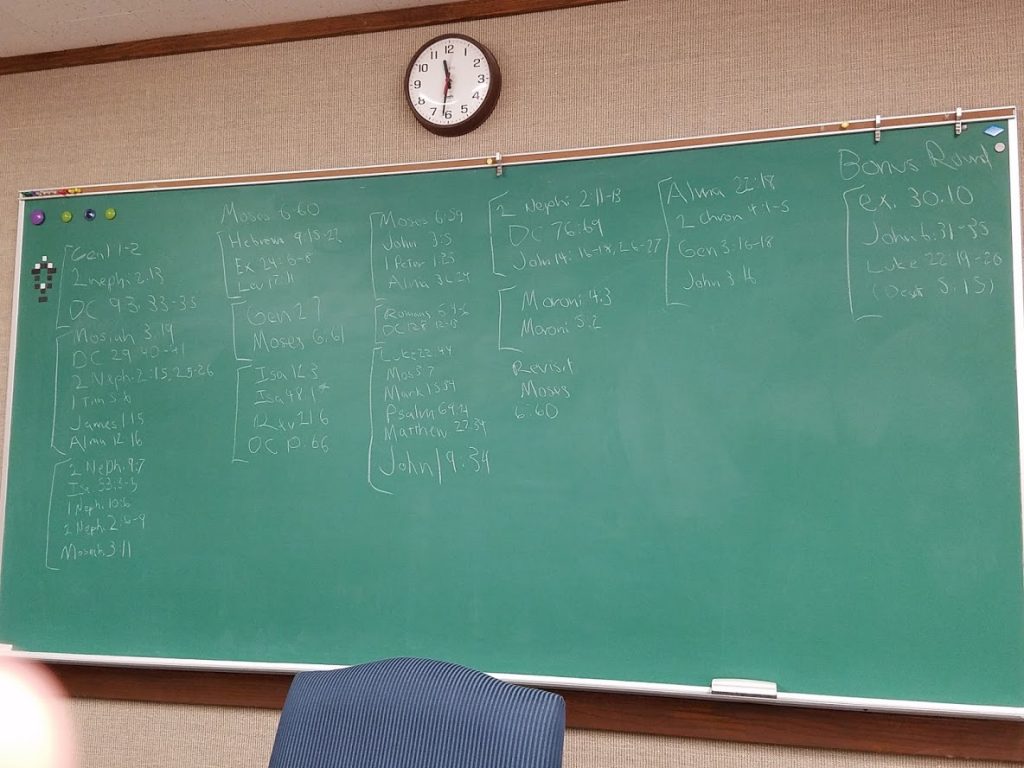 Gen 1 1-2
2 neph: 2.13
DC 93:33-35
Mosiah 3.19
DC 29:40-41
2 Neph: 2:15, 25-26
1 Tim 5:6
James 1 15
Alma 12 16
2 Neph. 9:7
Isa 53:3-5
1 Neph. 10:6
2 Neph. 2:6-9
Mosiah 3:11
Moses 6:60
Hebrews 9 15-22
Ex 24:6-8
Lev 17:11
Gen 2 7
Moses 6:61
Isa 12 3
Isa 48 1*
21 6
DC 10:66
Moses 6:59
John 3:5
1 Peter 1:23
Alma 36 24
Romans 5 4-6
DC 128 12-13
Luke 22:44
Mos 3:7
Mark 15 34
Psalm 69 21
Matthew 27 34
John 19:34
2 Nephi 2 11-13
DC 76:69
John 14: 16-18, 26-27
Moroni 4:3
Moroni 5:2
Revisit
Moses
6:60
Alma 22:18
2 chron 4:1-5
Gen 3:16-18
John 3:16
Bonus Round
ex. 30:10
John 6:31-35
Luke 22:19-20
(Deut 5:15)
12
1
2
3
4
5
6
7
8
9
10
11